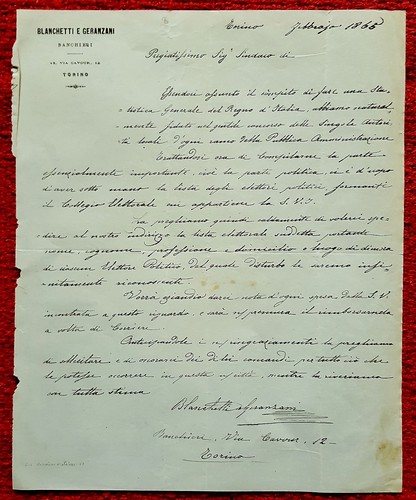 BLANCHETTI E GERANZANI
BANCHIERI
12, VIA CAVOUR, 12
TORINO
Torino febbrajo 1865
Pregiatissimo Sigr Sindaco di
Essendoci assunto il compito di fare una Sta-
tistica Generale del Regno d'Italia, abbiamo natural-
mente fidato nel gentile concorso delle Singole Autori-
tà locali d'ogni ramo della Pubblica Amministrazione.
Trattandosi ora di Compilarne la parte
essenzialmente importante, cioè la parte politica, ci è d'uopo
d'aver sott'mano la lista degli elettori politici formanti
il Collegio Elettorale cui appartiene la S. V. I.
La preghiamo quindi caldamente di volerci spe-
dire al nostro indirizzo la lista elettorale suddetta portante
nome, cognome, professione e domicilio o luogo di dimora
di ciascun Elettore Politico, del quale disturbo le saremo infi-
nitamente riconoscenti.
Vorrà eziandio darci nota d'ogni spesa dalla S. V.
incontrata a questo riguardo, e sarà nostra premura il rimborsarnela
a volta di Corriere.
Anticipandole i nostri ringraziamenti la preghiamo
di accettare e di onorarci dei di lei comandi per tutto ciò che
le potesse occorrere in questa città, mentre la riveriamo
con tutta stima
Blanchetti e Geranzani
Banchieri - Via Cavour, 12
Torino